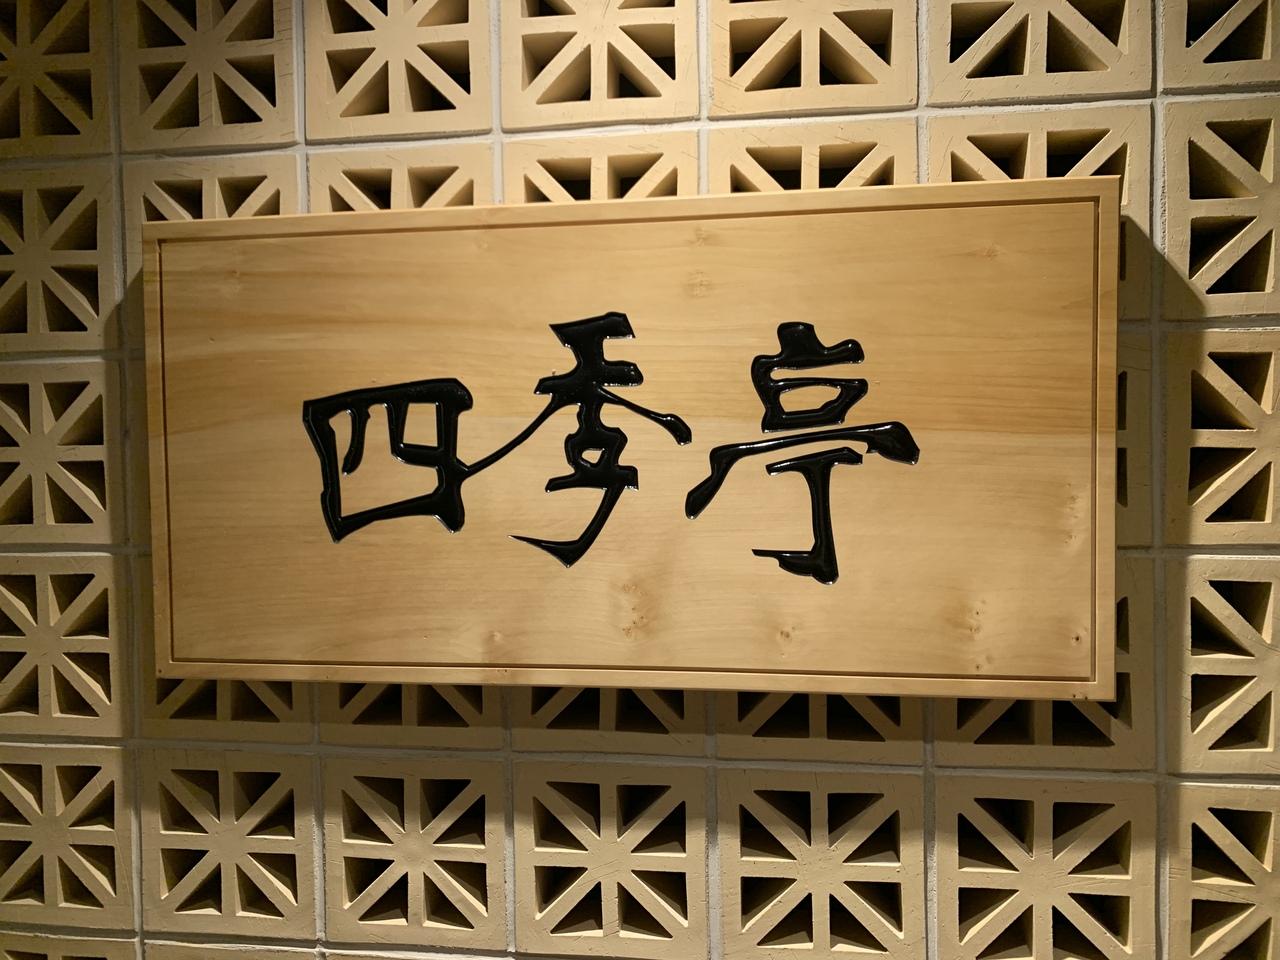 四季亭